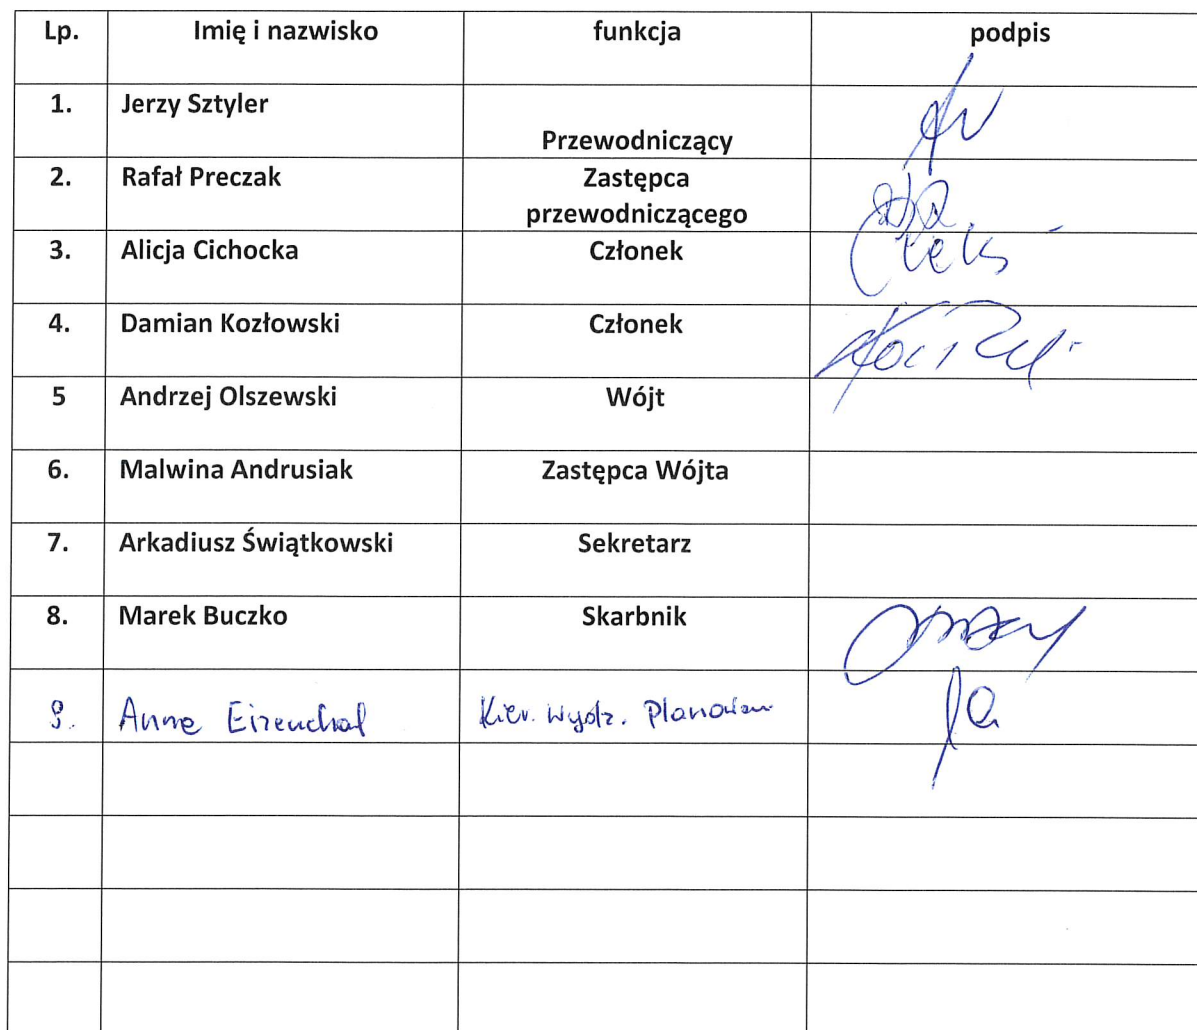 Lp. Imię i nazwisko funkcja podpis
1. Jerzy Sztyler Przewodniczący
2. Rafał Preczak Zastępca
przewodniczącego
3. Alicja Cichocka Członek
4. Damian Kozłowski Członek
5 Andrzej Olszewski Wójt
6. Malwina Andrusiak Zastępca Wójta
7. Arkadiusz Świątkowski Sekretarz
8. Marek Buczko Skarbnik
9. Anna Kier. Wydz.